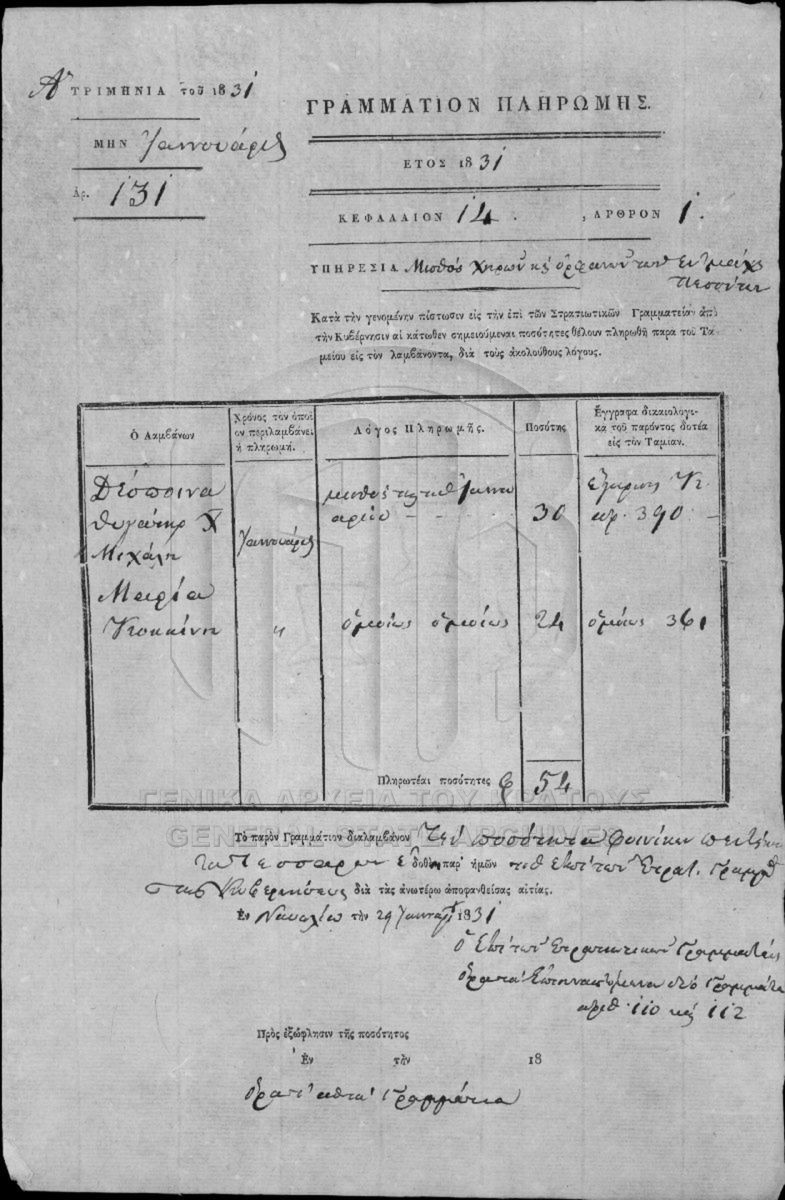 Αη ΤΡΙΜΗΝΙΑ τοῦ 1831
ΜΗΝ Ἰαννουάριος
Ἀρ. 131
ΓΡΑΜΜΑΤΙΟΝ ΠΛΗΡΩΜΗΣ.
ΕΤΟΣ 1831
ΚΕΦΑΛΑΙΟΝ 14. , ΑΡΘΡΟΝ 1.
ΥΠΗΡΕΣΙΑ Μισθὸς Χηρῶν καὶ ὀρφανῶν τῶν ἐν μάχῃ
πεσόντων
Κατὰ τὴν γενομένην πίστωσιν εἰς τὴν ἐπὶ τῶν Στρατιωτικῶν Γραμματείαν ἀπὸ
τὴν Κυβέρνησιν αἱ κάτωθεν σημειούμεναι ποσότητες θέλουν πληρωθῆ παρα τοῦ Τα-
μείου εἰς τὸν λαμβάνοντα, διὰ τοὺς ἀκολούθους λόγους.
Ὁ Λαμβάνων
Χρόνος τὸν ὁποῖ
ον περιλαμβάνει
ἡ πληρωμή.
Λόγος Πληρωμῆς.
Ποσότης
Ἔγγραφα δικαιολογι-
κὰ τοῦ παρόντος δοτέα
εἰς τὸν Ταμίαν.
Δέσποινα
θυγάτηρ Χ
Μιχάλη
Ἰαννουάριος
μισθός της Ἰαννου
αρίου - - - 30
ἀρ. 390 -
Μαρία
Κοκκίνη
〃
ὁμοίως ὁμοίως 24 ὁμοίως 361
Πληρωτέαι ποσότητες 54
Τὸ παρὸν Γραμμάτιον διαλαμβάνον τὴν ποσότητα φοινίκων πεντήκον
τα τεσσάρων ἐδόθη παρ' ἡμῶν τοῦ ἐπὶ τῶν Στρατ. Γραμμ
τῆς Κυβερνήσεως διὰ τὰς ἀνωτέρω ἀποφανθείσας αἰτίας.
Ἐν Ναυπλίῳ τὴν 29 Ἰανναρ 1831
Ὁ ἐπὶ τῶν Στρατιωτικῶν Γραμματεὺς
δύο Γραμμάτια
ἀριθ. 110 καὶ 112
Πρὸς ἐξώφλησιν τῆς ποσότητος
Ἐν τὴν 18
Γραμμάτια
ΓΕΝΙΚΑ ΑΡΧΕΙΑ ΤΟΥ ΚΡΑΤΟΥΣ
GENERAL STATE ARCHIVES